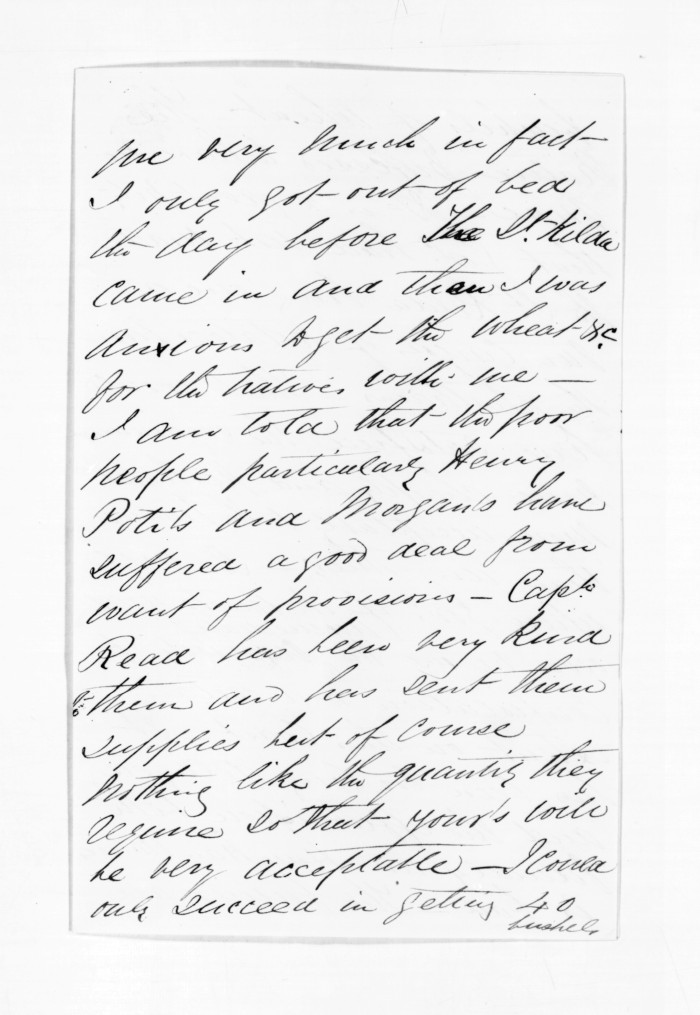 me very much in fact
I only got out of bed
the day before The St. Kilda
came in and then I was
anxious to get the wheat &c.
for the natives with me —
I am told that the poor
people particularly Henry
Potits and Morgan's have
suffered a good deal from
want of provisions — Captn
Read has been very kind
to them and has sent them
supplies but of course
nothing like the quantity they
require so that your's will
be very acceptable — I could
only succeed in getting 40
bushels